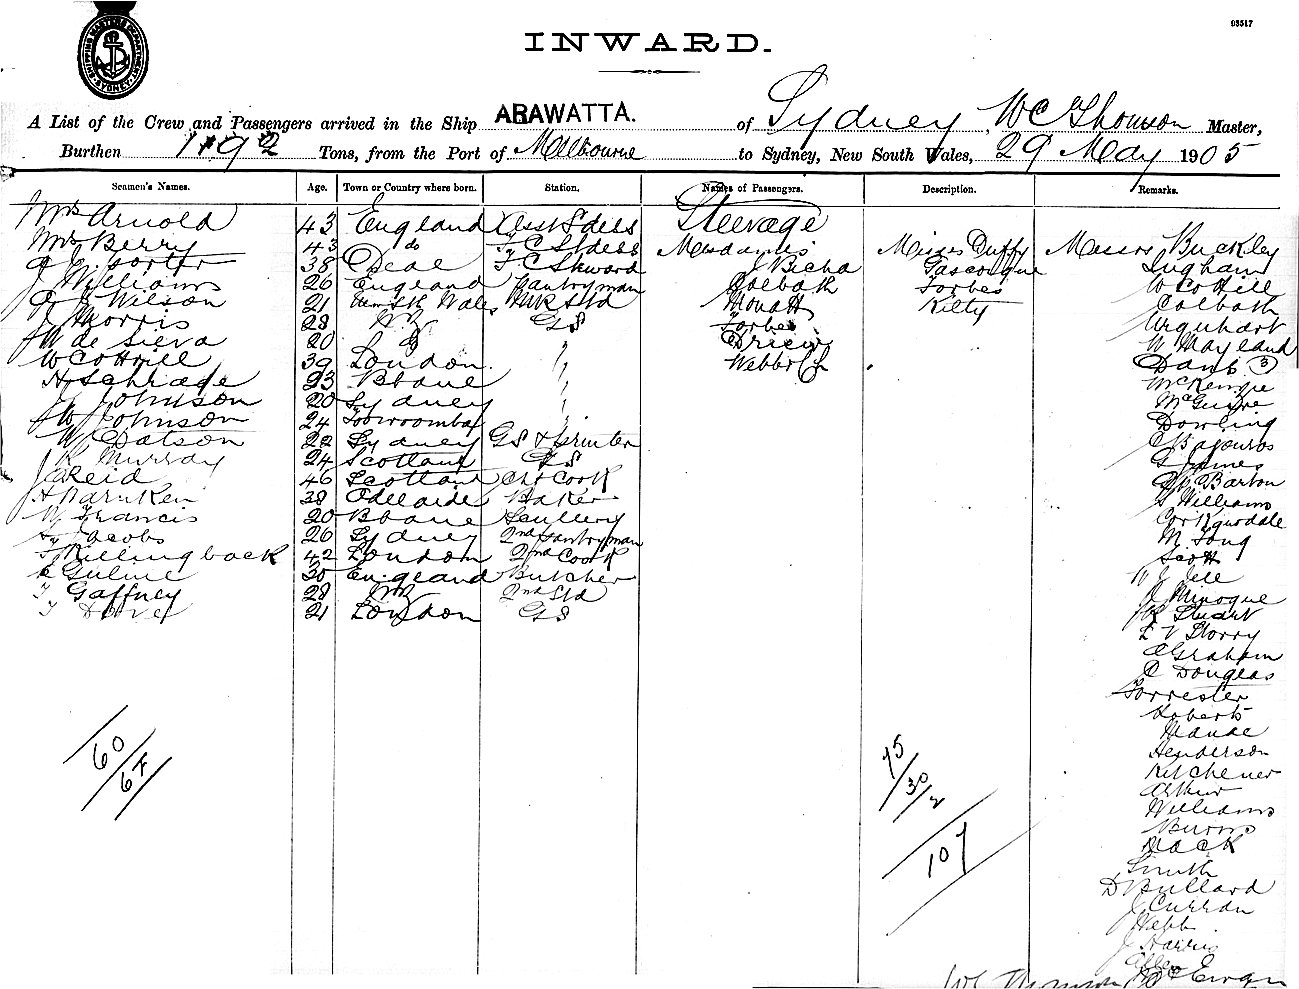 SHIPPING MASTERS DEPARTMENT SYDNEY
03517
INWARD.
A List of the Crew and Passengers arrived in the Ship ARAWATTA. of Sydney, W C Thomson Master,
Burthen 1192 Tons, from the Port of Melbourne to Sydney, New South Wales, 29 May 1905
Seamen's Names. Age. Town or Country where born. Station. Names of Passengers. Description. Remarks.
Mrs Arnold 43 England Asst S'dess Steerage
Mrs Berry 43 do F C St'dess Mesdames Misses Duffy Messrs Buckley
Porter 38 Deal F C Steward J Bicha Gascoyne Ingham
J Williams 26 England Pantryman Colbath Forbes W Cottill
Wilson 21 Wales Std Mouatt Kilty Colbath
Morris 28 NZ GS Forbes Urquhart
W de Sieva 20 " Webber W Mayland
W Cottrill 39 London " Danb 3
H Schrade 23 Bbane " McKenzie
J Johnson 20 Sydney " McGuire
W Johnson 24 Toowoomba " Dowling
W Watson 22 Sydney GS & Printer
J R Murray 24 Scotland GS G James
J Reid 46 Scotland Ch Cook Barton
H Barnken 38 Adelaide Baker S Williams
W Francis 20 Bbane Scullery Corkquodale
Hy Jacobs 26 Sydney 2nd Pantryman M Tong
T Killingback 42 London 2nd Cook Scott
30 England Butcher
T Gaffney 28 NZ 2nd Std J Minogue
T Dover 21 London GS Stuart
E V Storry
C Graham
C Douglas
Forrester
Roberts
Maude
Henderson
Kitchener
Arthur
Williams
Burns
Mack
Smith
D Bullard
J Curran
Webb
J Harris
Allen
60
67
75
30
2
107
W C Thomson